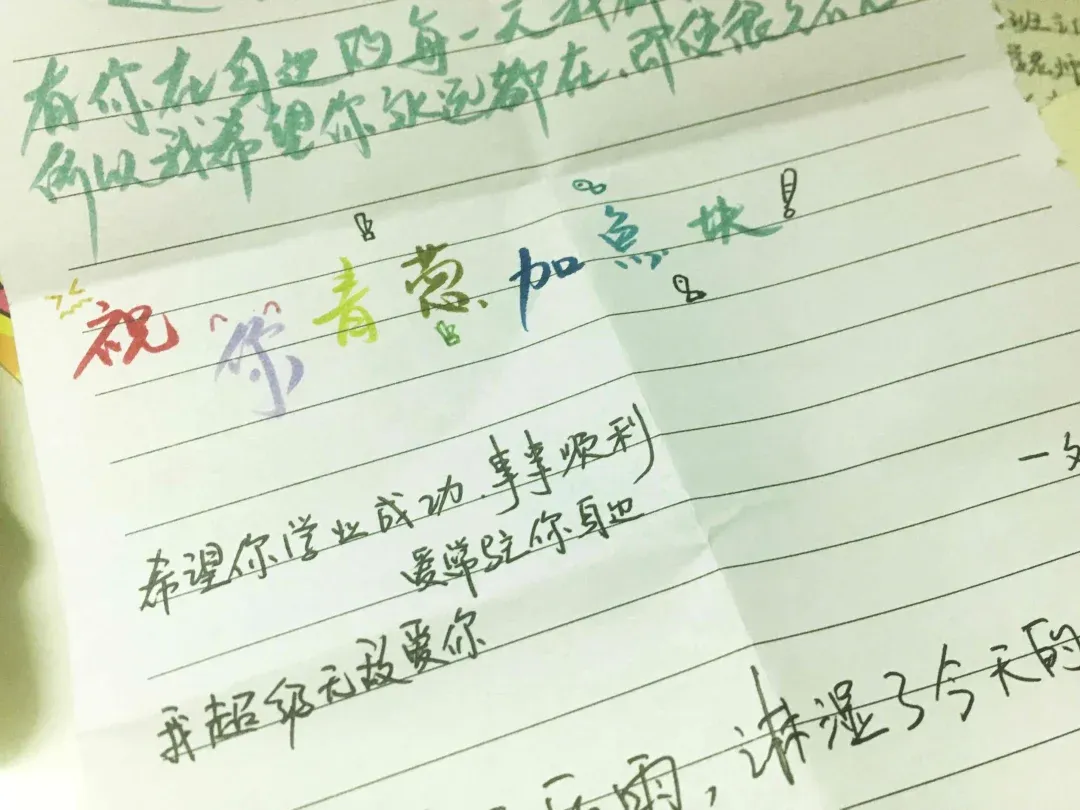 有你在身边的每一天我
所以我希望你永远都在,即使很久
祝你青葱加鱼块!
希望你学业成功、事事顺利
爱常驻你身边
我超级无敌爱你
一
雨,淋湿了今天的